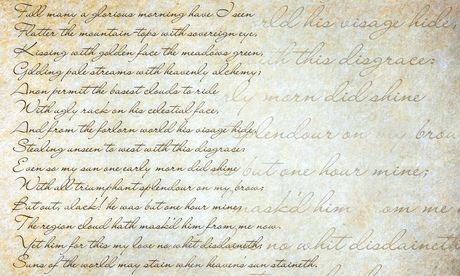 Full many a glorious morning have I seen
Flatter the mountain-tops with sovereign eye,
Kissing with golden face the meadows green,
Gilding pale streams with heavenly alchemy;
Anon permit the basest clouds to ride
With ugly rack on his celestial face,
And from the forlorn world his visage hide,
Stealing unseen to west with this disgrace:
Even so my sun one early morn did shine
With all triumphant splendour on my brow;
But out, alack! he was but one hour mine;
The region cloud hath mask'd him from me now.
Yet him for this my love no whit disdaineth;
Suns of the world may stain when heaven's sun staineth.
his visage hide,
this disgrace:
morn did shine
on my
but one hour mine;
him
me
no whit disdaineth;